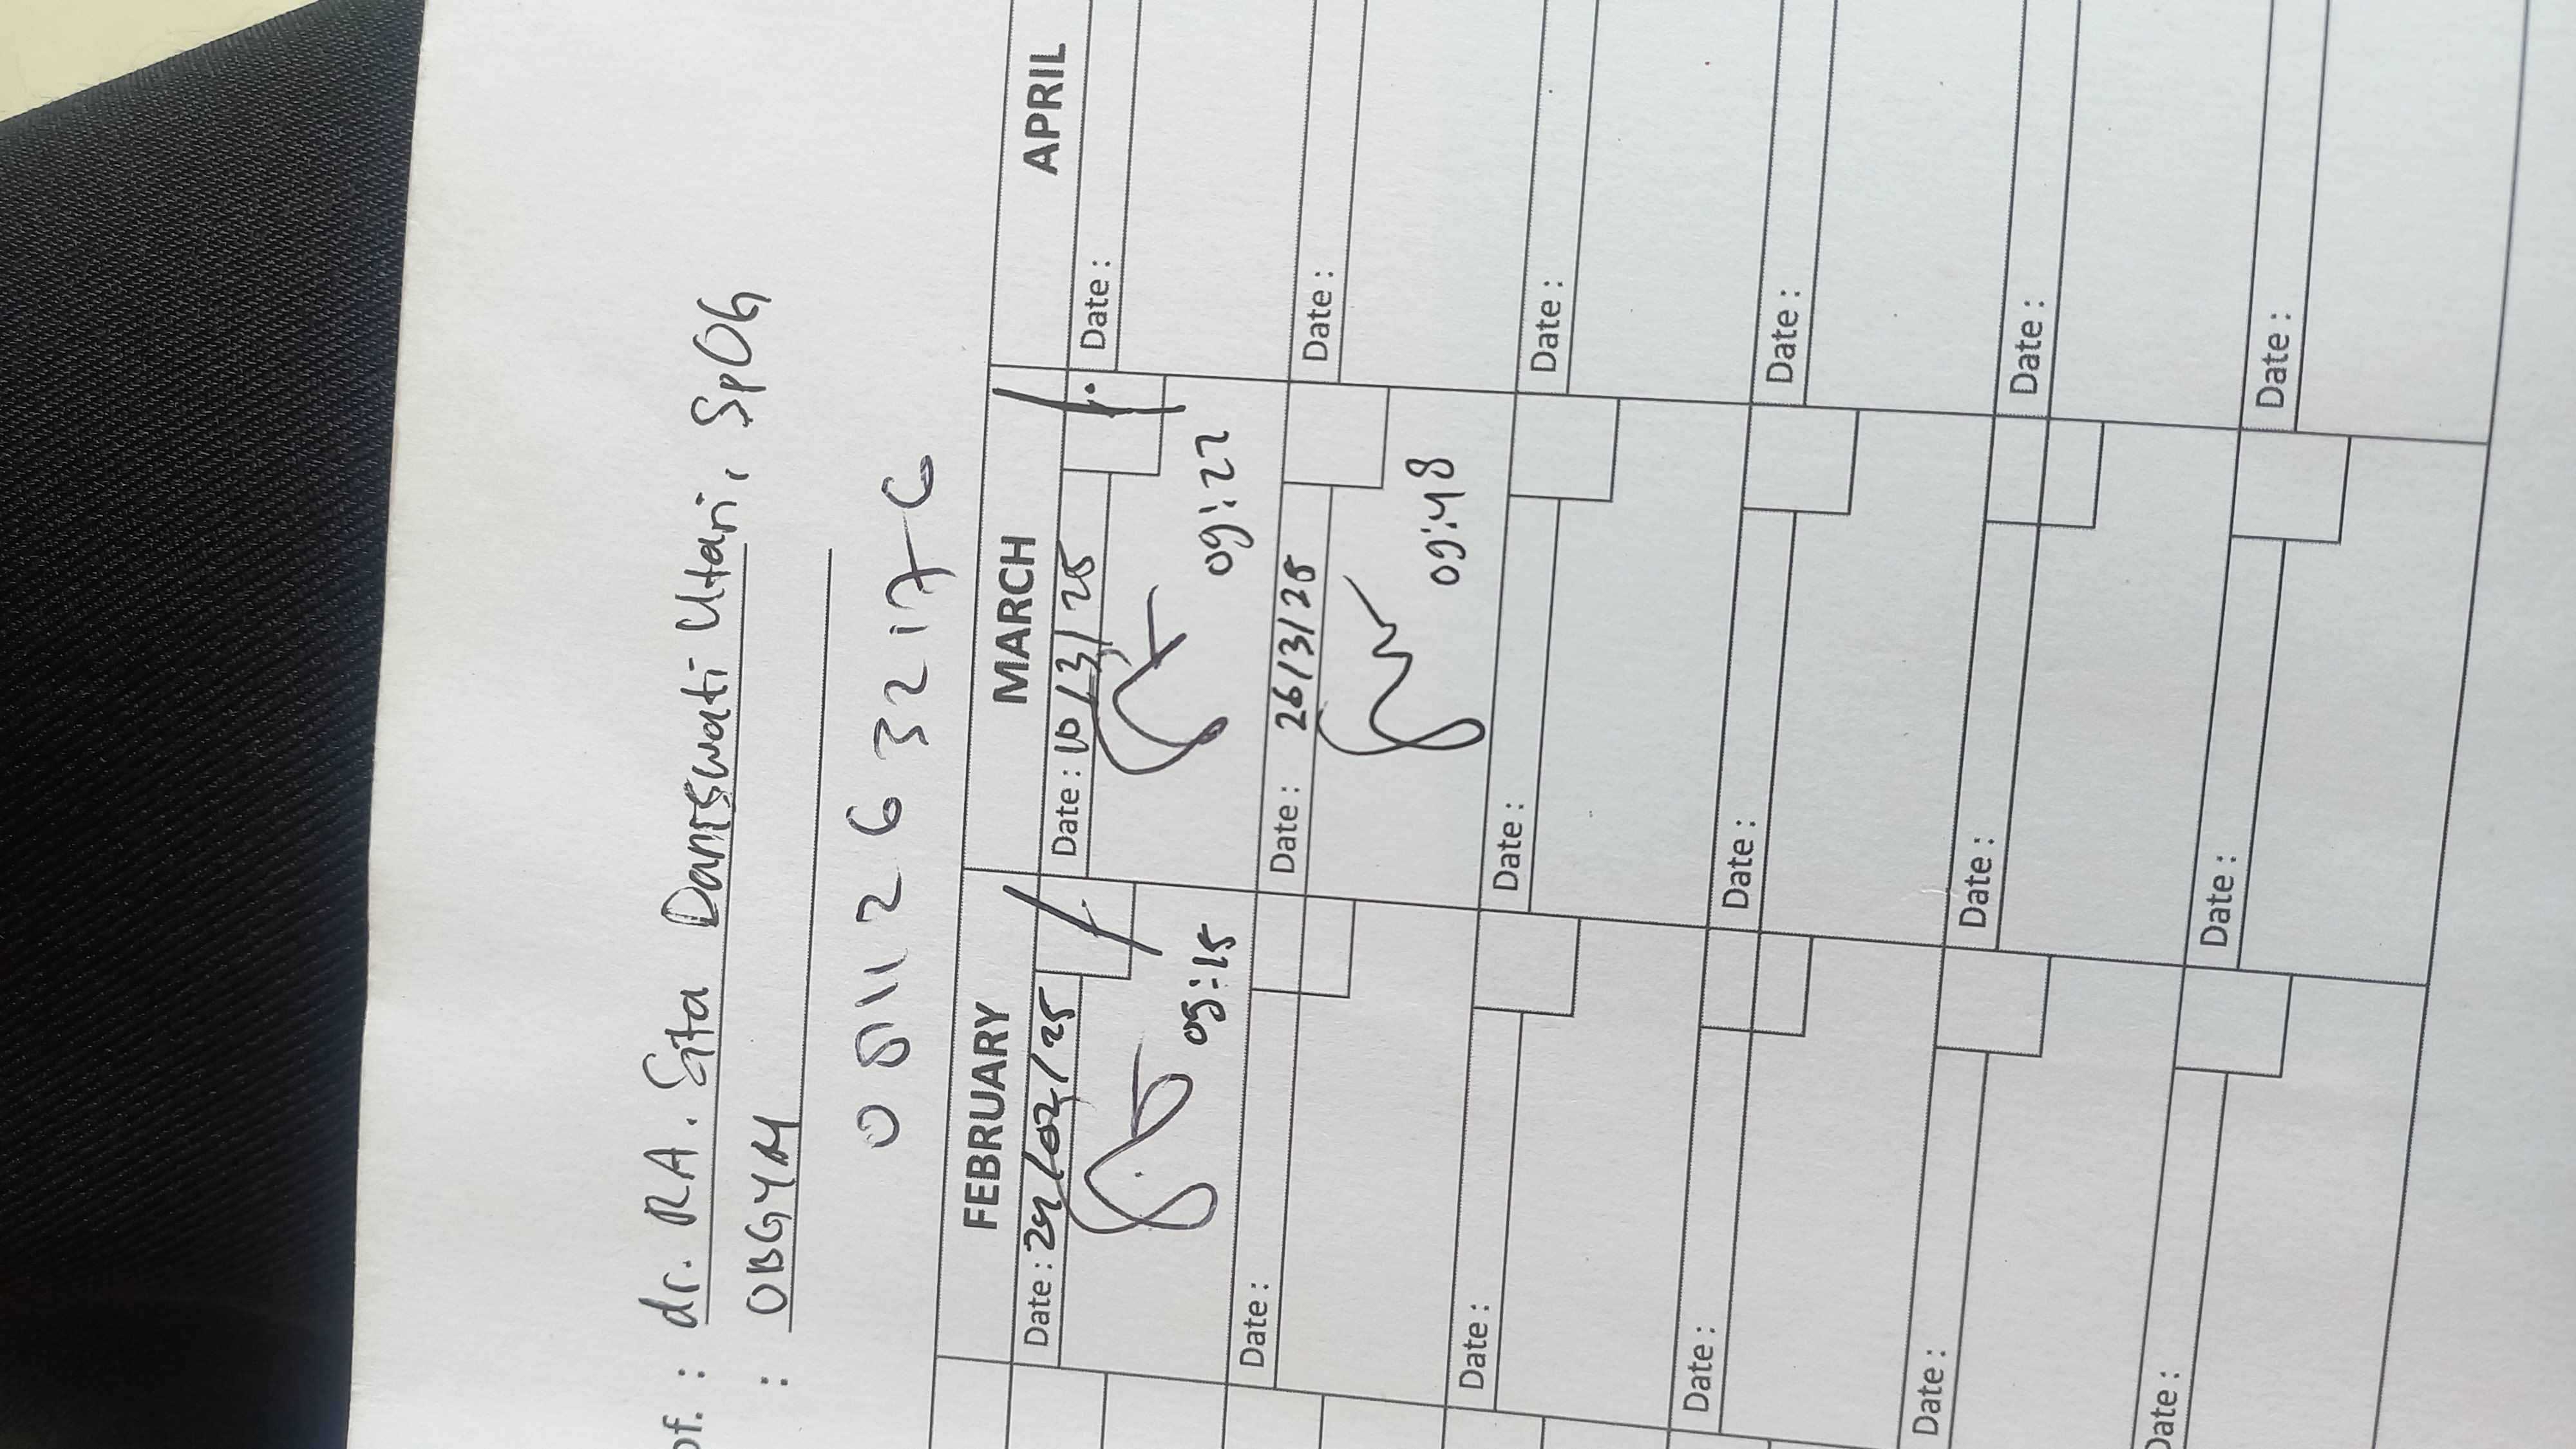 of. : dr. RA. Sita Daniswati Utari, SpOG
: OBGYN
0 8 1 1 2 6 3 2 1 7 6
FEBRUARY MARCH APRIL
Date : 24/02/25 Date : 10/3/25 Date :
09:15 09:27
Date : Date : 26/3/25 Date :
09:48
Date : Date : Date :
Date : Date : Date :
Date : Date : Date :
Date : Date : Date :